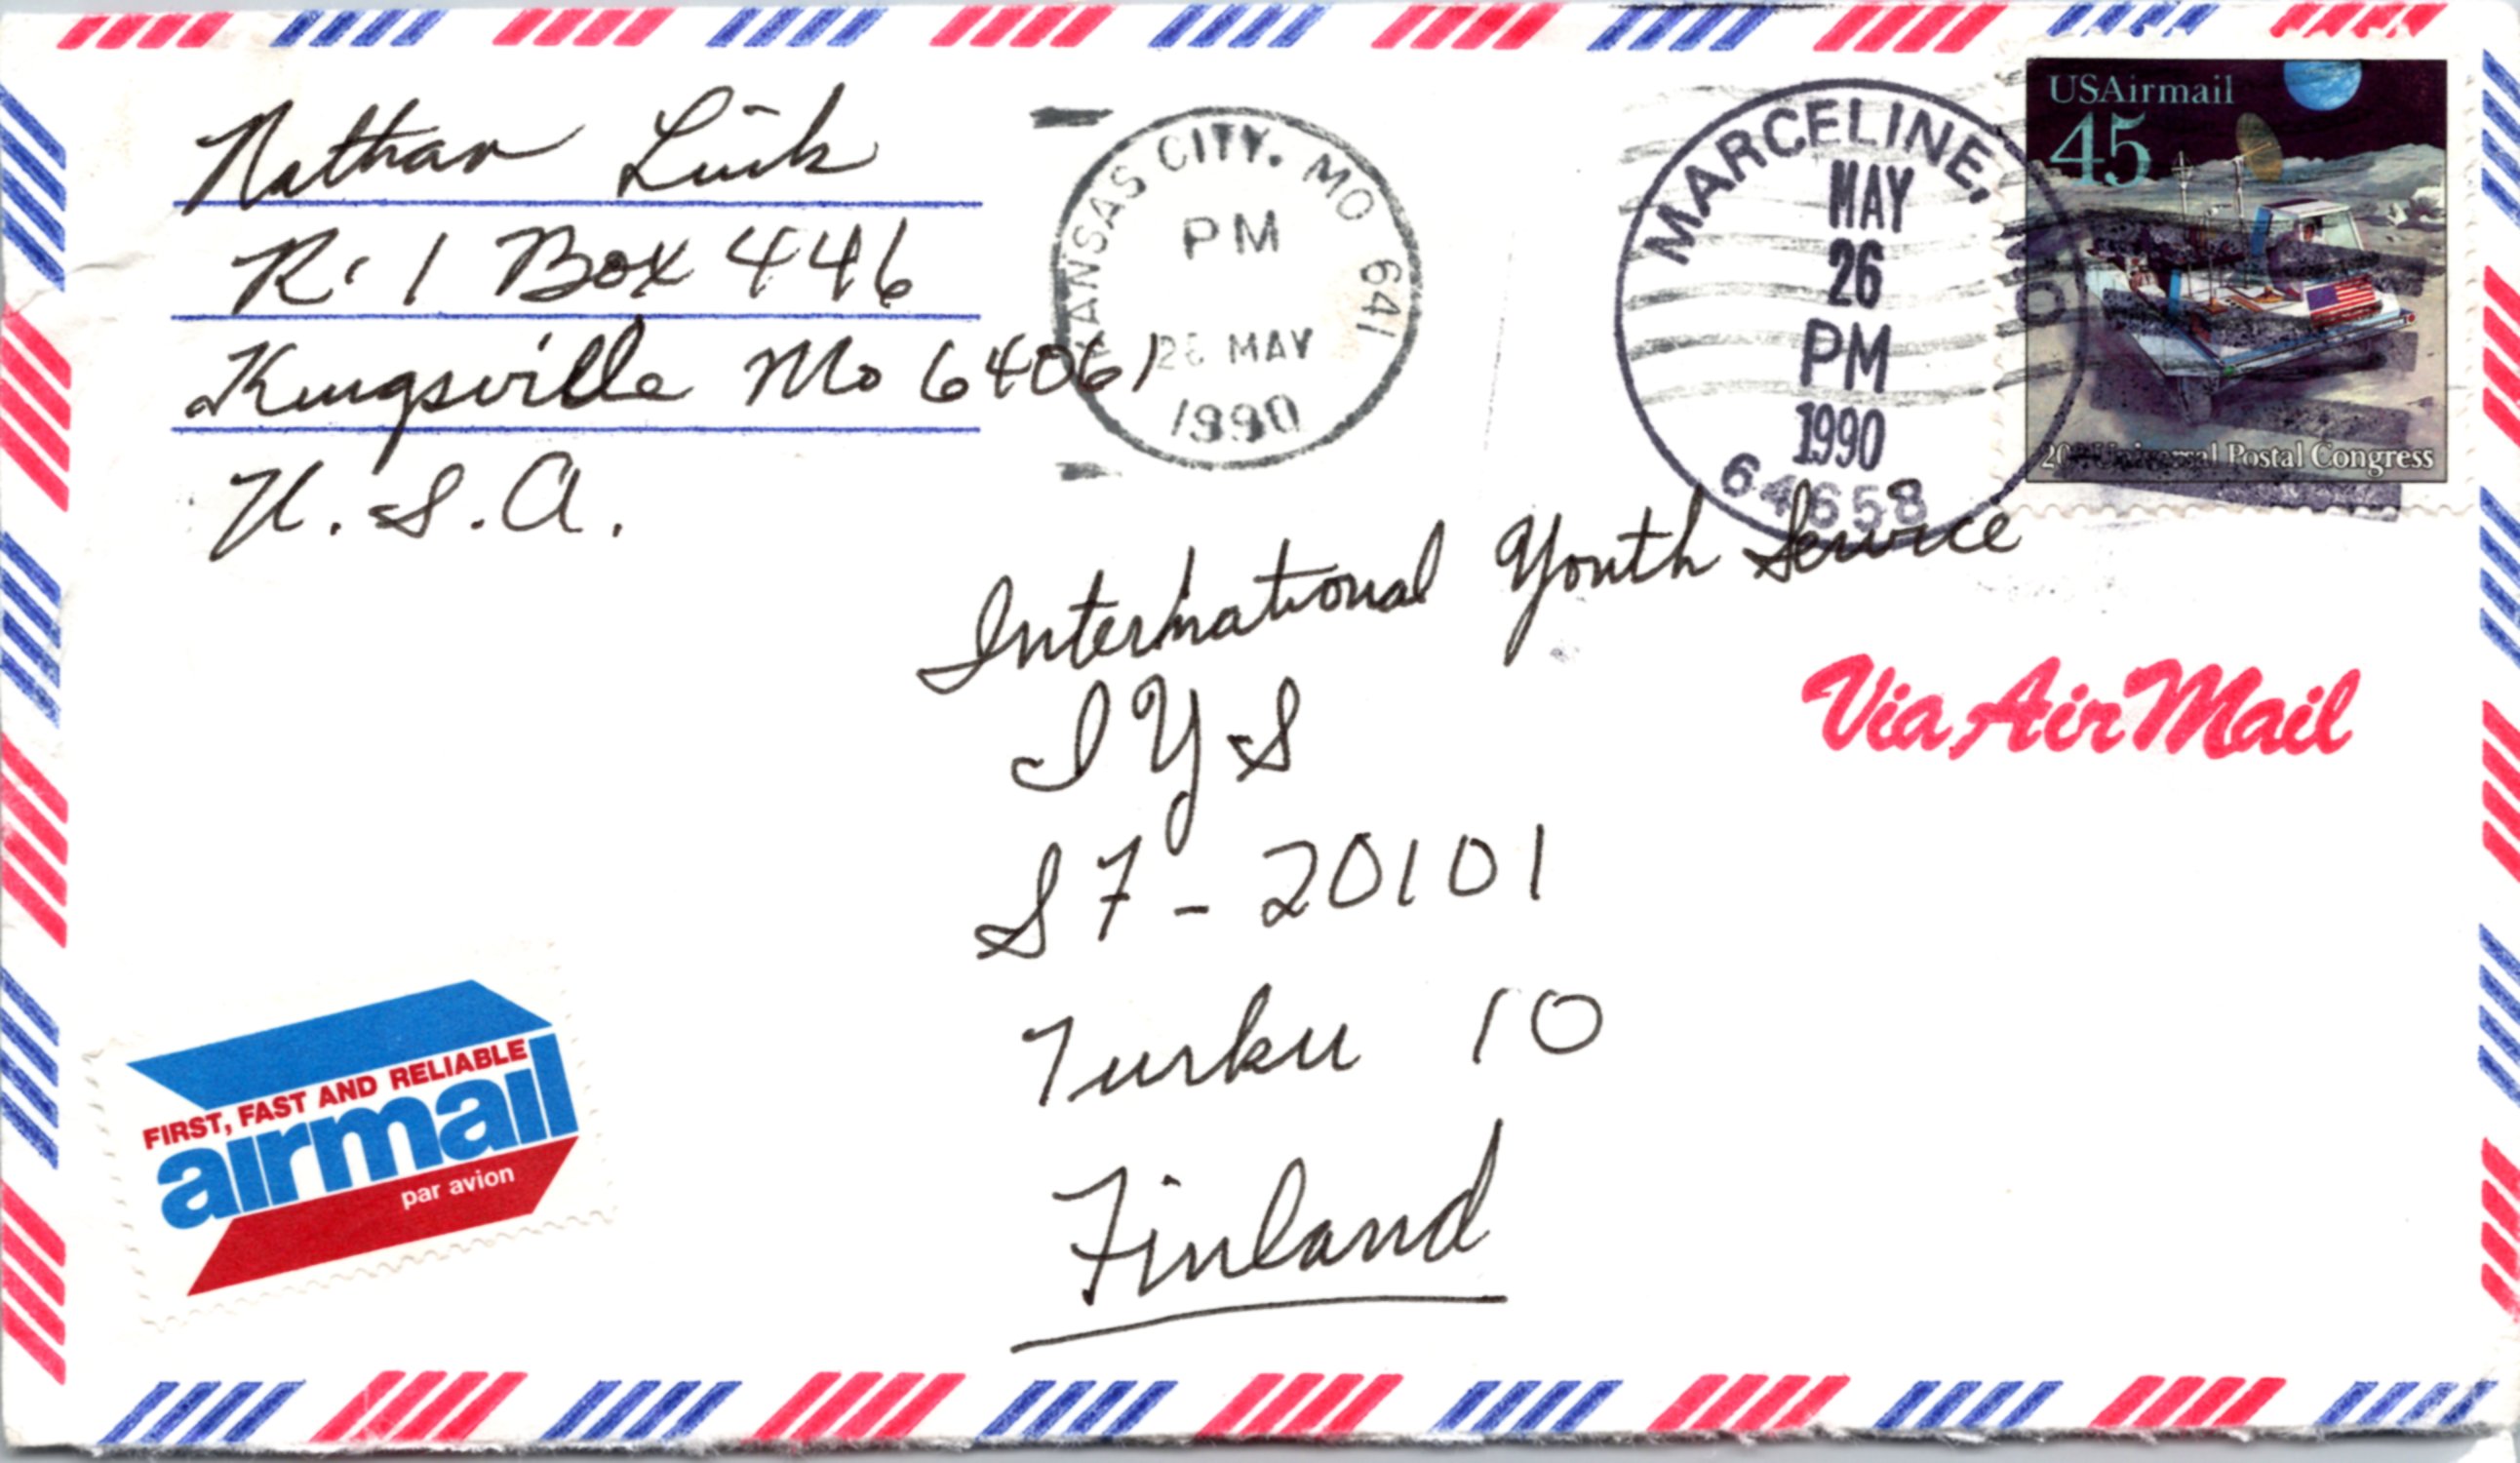 Nathan Link
R. 1 Box 446
Kingsville Mo 64061
U.S.A.
KANSAS CITY, MO 641
PM
26 MAY
1990
MARCELINE, MO
MAY
26
PM
1990
64658
USAirmail
45
20th Universal Postal Congress
International Youth Service
IYS
SF-20101
Turku 10
Finland
Via Air Mail
FIRST, FAST AND RELIABLE
airmail
par avion